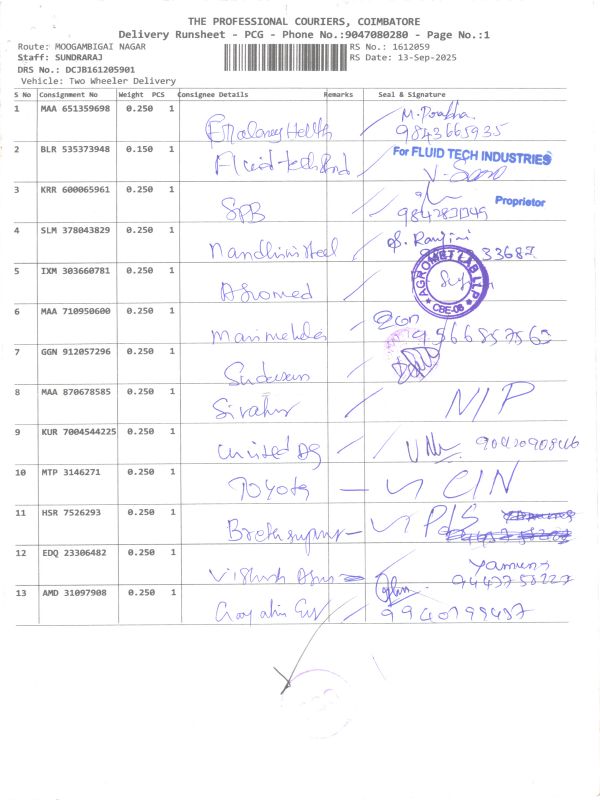 THE PROFESSIONAL COURIERS, COIMBATORE
Delivery Runsheet - PCG - Phone No.:9047080280 - Page No.:1
Route: MOOGAMBIGAI NAGAR
RS No.: 1612059
Staff: SUNDRARAJ
RS Date: 13-Sep-2025
DRS No.: DCJB161205901
Vehicle: Two Wheeler Delivery
S No Consignment No Weight PCS Consignee Details Remarks Seal & Signature
1 MAA 651359698 0.250 1
9843665935
2 BLR 535373948 0.150 1
For FLUID TECH INDUSTRIES
3 KRR 600065961 0.250 1 SPB
Proprietor
4 SLM 378043829 0.250 1 Nandhini steel S. Ranjini
33687
5 IXM 303660781 0.250 1 Agromed
AGROMET LAB LLP
CBE-06
6 MAA 710950600 0.250 1
9566857563
7 GGN 912057296 0.250 1
8 MAA 870678585 0.250 1 N/P
9 KUR 7004544225 0.250 1 United
10 MTP 3146271 0.250 1 Toyota C/N
11 HSR 7526293 0.250 1 P/S
12 EDQ 23306482 0.250 1 Yamuna
9443758227
13 AMD 31097908 0.250 1
9940799437